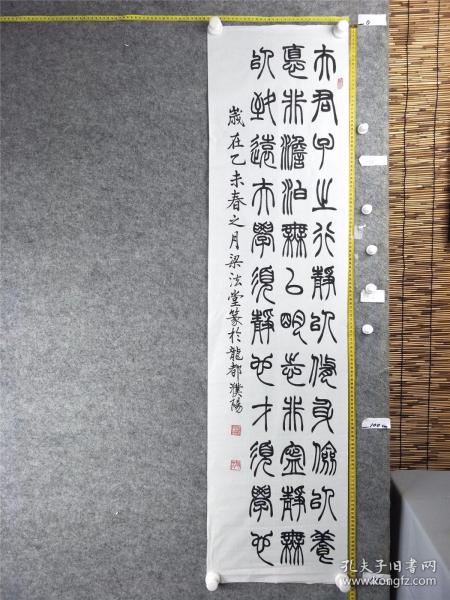 夫君子之行靜以修身儉以養
惪非澹泊無以明志非寧靜無
以致遠夫學須靜也才須學也
歲在乙未春之月梁法堂篆於龍都濮陽
0
100 cm
孔夫子旧书网
www.kongfz.com